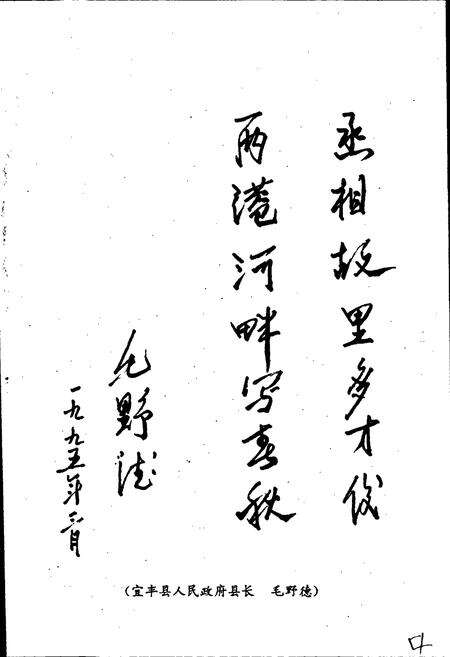 丞相故里多才俊
两港河畔写春秋
毛野德
一九九五年三月
（宜丰县人民政府县长　毛野德）